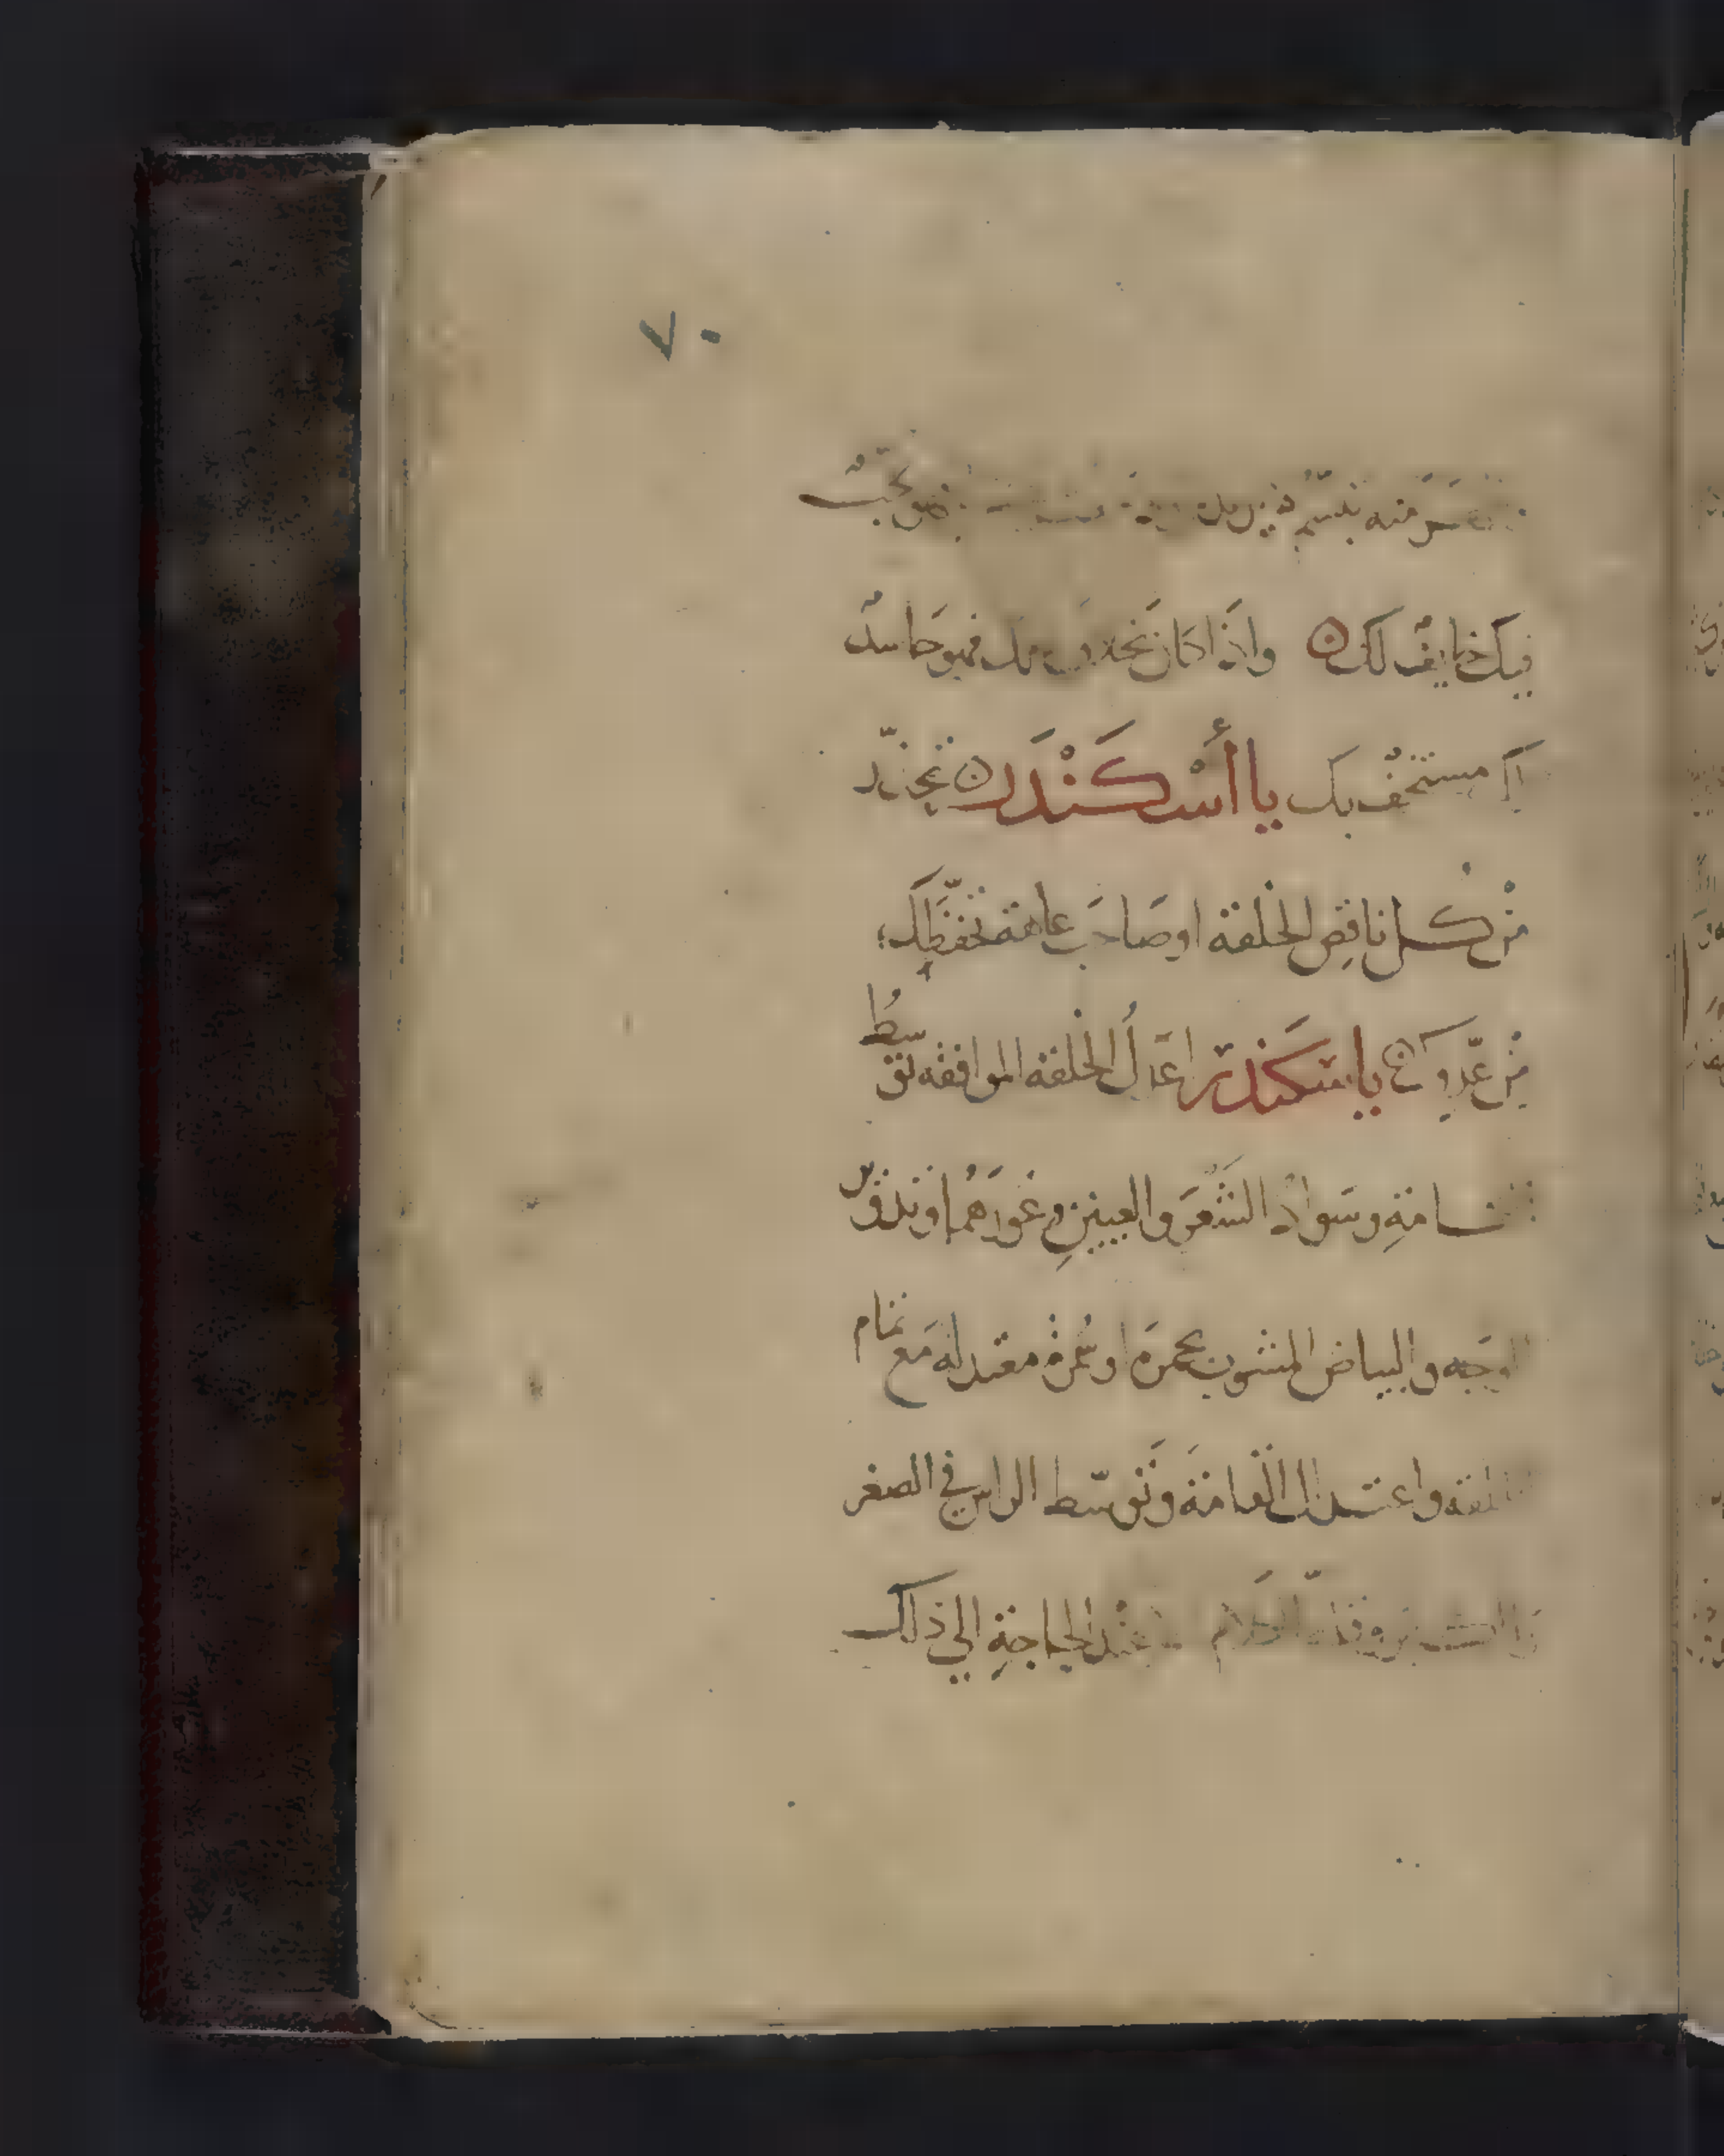 ٧٠
منه تبسّم فهو محبٌ
فيك خايفٌ لك ن واذا كان بخلاف ذلك فهو حاسدٌ
لك مستخفٌ بك يا أسْكَنْدَر ن تحذّر
منْ كل ناقِص الخلقة او صَاحبَ عاهة تحفظَّك
منْ عدّوك ن يا سكندر اعدَلُ الخلقة الموافقه توسطُ
القامةِ وسَواد الشَعَر والعينينِ وغورَهُما وتدوير
الوَجه والبياض المشوب بحمرَه او سُمرة معتدله مَع تمام
الخلقة واعتدال القامَة وتَوسّط الراس في الصغر
الكلام الا عنْد الحاجةِ الي ذلك